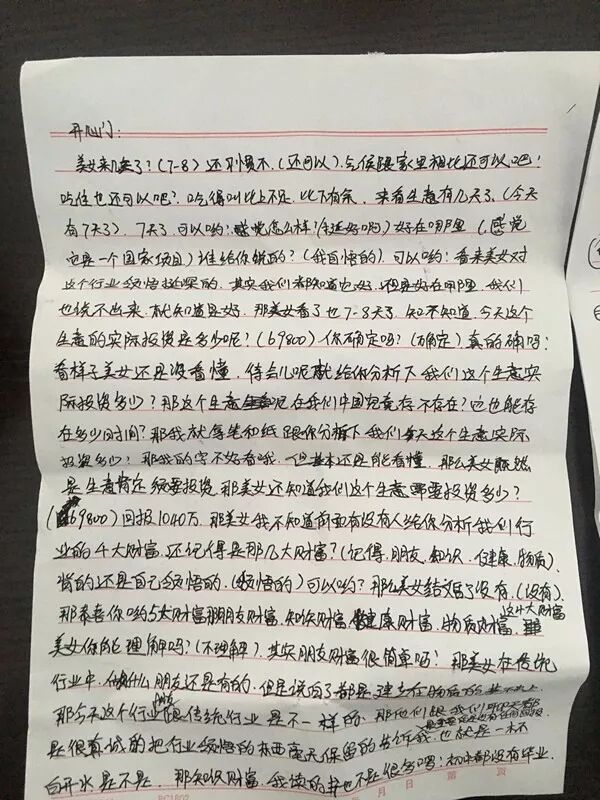 开心门：
美女来几天了？(7-8) 还习惯不 (还可以) 气候跟家里相比还可以吧！
吃住也还可以吧？吃得叫比上不足，比下有余，来看生意有几天了，(今天
有7天了)，7天了，可以哟！感觉怎么样？(挺好的) 好在哪里 (感觉
它是一个国家项目) 谁给你说的？(我自悟的)，可以哟！看来美女对
这个行业领悟挺深的，其实我们都知道它好，但是好在哪里，我们
也说不出来，就知道是好，那美女看了也7-8天了，知不知道，今天这个
生意的实际投资是多少呢？(69800) 你确定吗？(确定) 真的确吗？
看样子美女还是没看懂，待会儿呢就给你分析下我们这个生意实
际投资多少？那这个生意呢在我们中国究竟存不存在？它也能存
在多少时间？那我就拿笔和纸跟你分析下我们今天这个生意实际
投资多少？那我的字不好看哦，但基本还是能看懂，那么美女既然
是生意肯定须要投资，那美女还知道我们这个生意需要投资多少？
(69800) 回报1040万，那美女我不知道前面有没有人给你分析我们行
业的4大财富，还记得是那几大财富？(记得，朋友，知识，健康，物质)，
当的还是自己领悟的，(领悟的) 可以哟？那么美女结婚了没有，(没有)，
那来看你哟5大财富朋友财富，知识财富，健康财富，物质财富，这4大财富
美女你能理解吗？(不理解)，其实朋友财富很简单吧？那美女在传统
行业中，什么朋友还是有的，但是说白了都是建立在物质的基础上
那今天这个行业跟传统行业是不一样的，那他们跟我们聊天都
是很真诚的把行业领悟的东西毫无保留的告诉我，也就是一杯
白开水是不是，那知识财富，我读的书也不是很多吧！初中都没有毕业
月 日 第 页